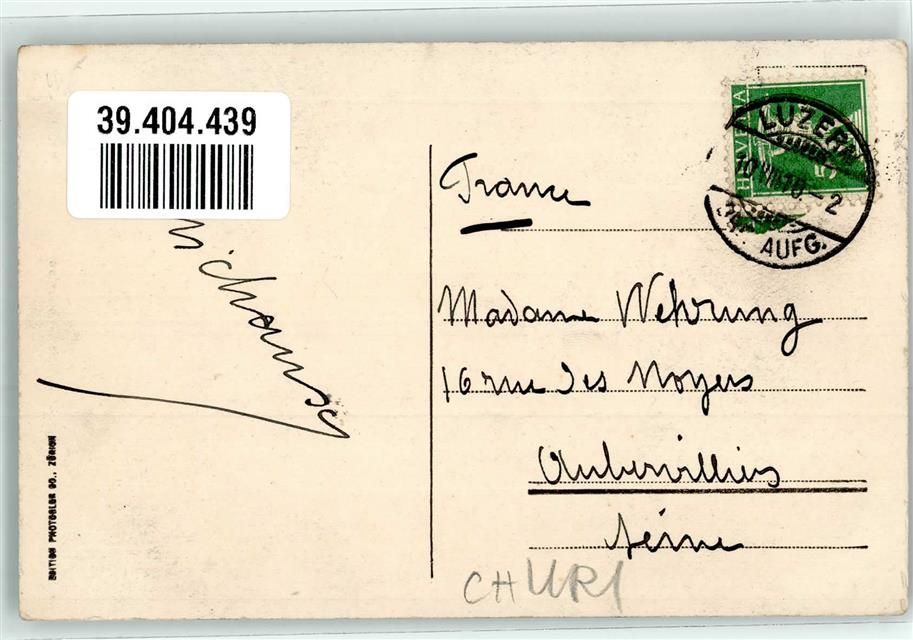 39.404.439
HELVETIA
5
LUZERN
10.VIII.10.-2
AUFG.
France
Madame Wehrung
16 rue des Noyers
Aubervilliers
Seine
CH URI
EDITION PHOTOGLOB CO., ZÜRICH